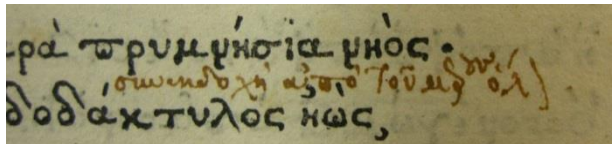 ρὰ πρυμνήσια νηὸς.
συνεκδοχὴ ἀπὸ τοῦ
δοδάκτυλος ἠὼς,